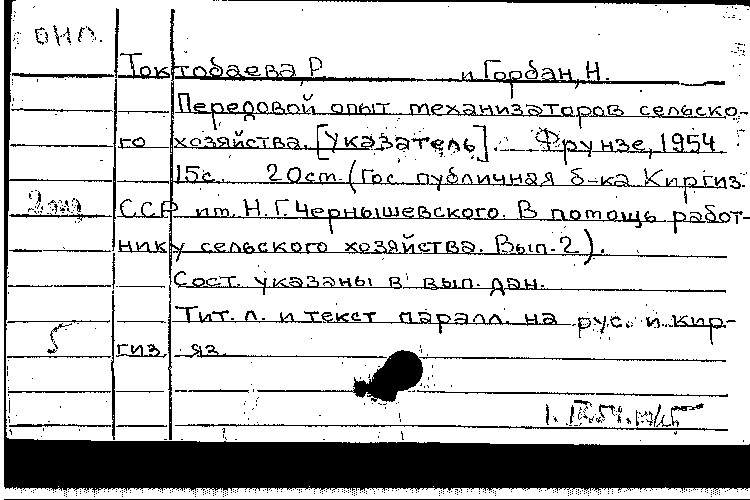 ОНЛ.
Токтобаева, Р и Горбан, Н.
Передовой опыт механизаторов сельско-
го хозяйства. [Указатель]. Фрунзе, 1954
15с. 20ст. (Гос. публичная б-ка Киргиз.
2 экз
ССР им. Н.Г. Чернышевского. В помощь работ-
нику сельского хозяйства. Вып. 2).
Сост. указаны в вып. дан.
Тит. л. и текст паралл. на рус. и кир-
5
гиз. яз.